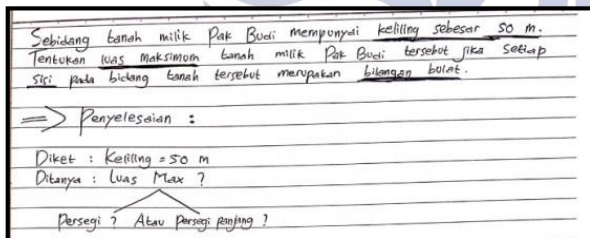 Sebidang tanah milik Pak Budi mempunyai keliling sebesar 50 m.
Tentukan luas maksimum tanah milik Pak Budi tersebut jika setiap
sisi pada bidang tanah tersebut merupakan bilangan bulat.
=> Penyelesaian :
Diket : Keliling = 50 m
Ditanya : Luas Max ?
Persegi ? Atau Persegi panjang ?